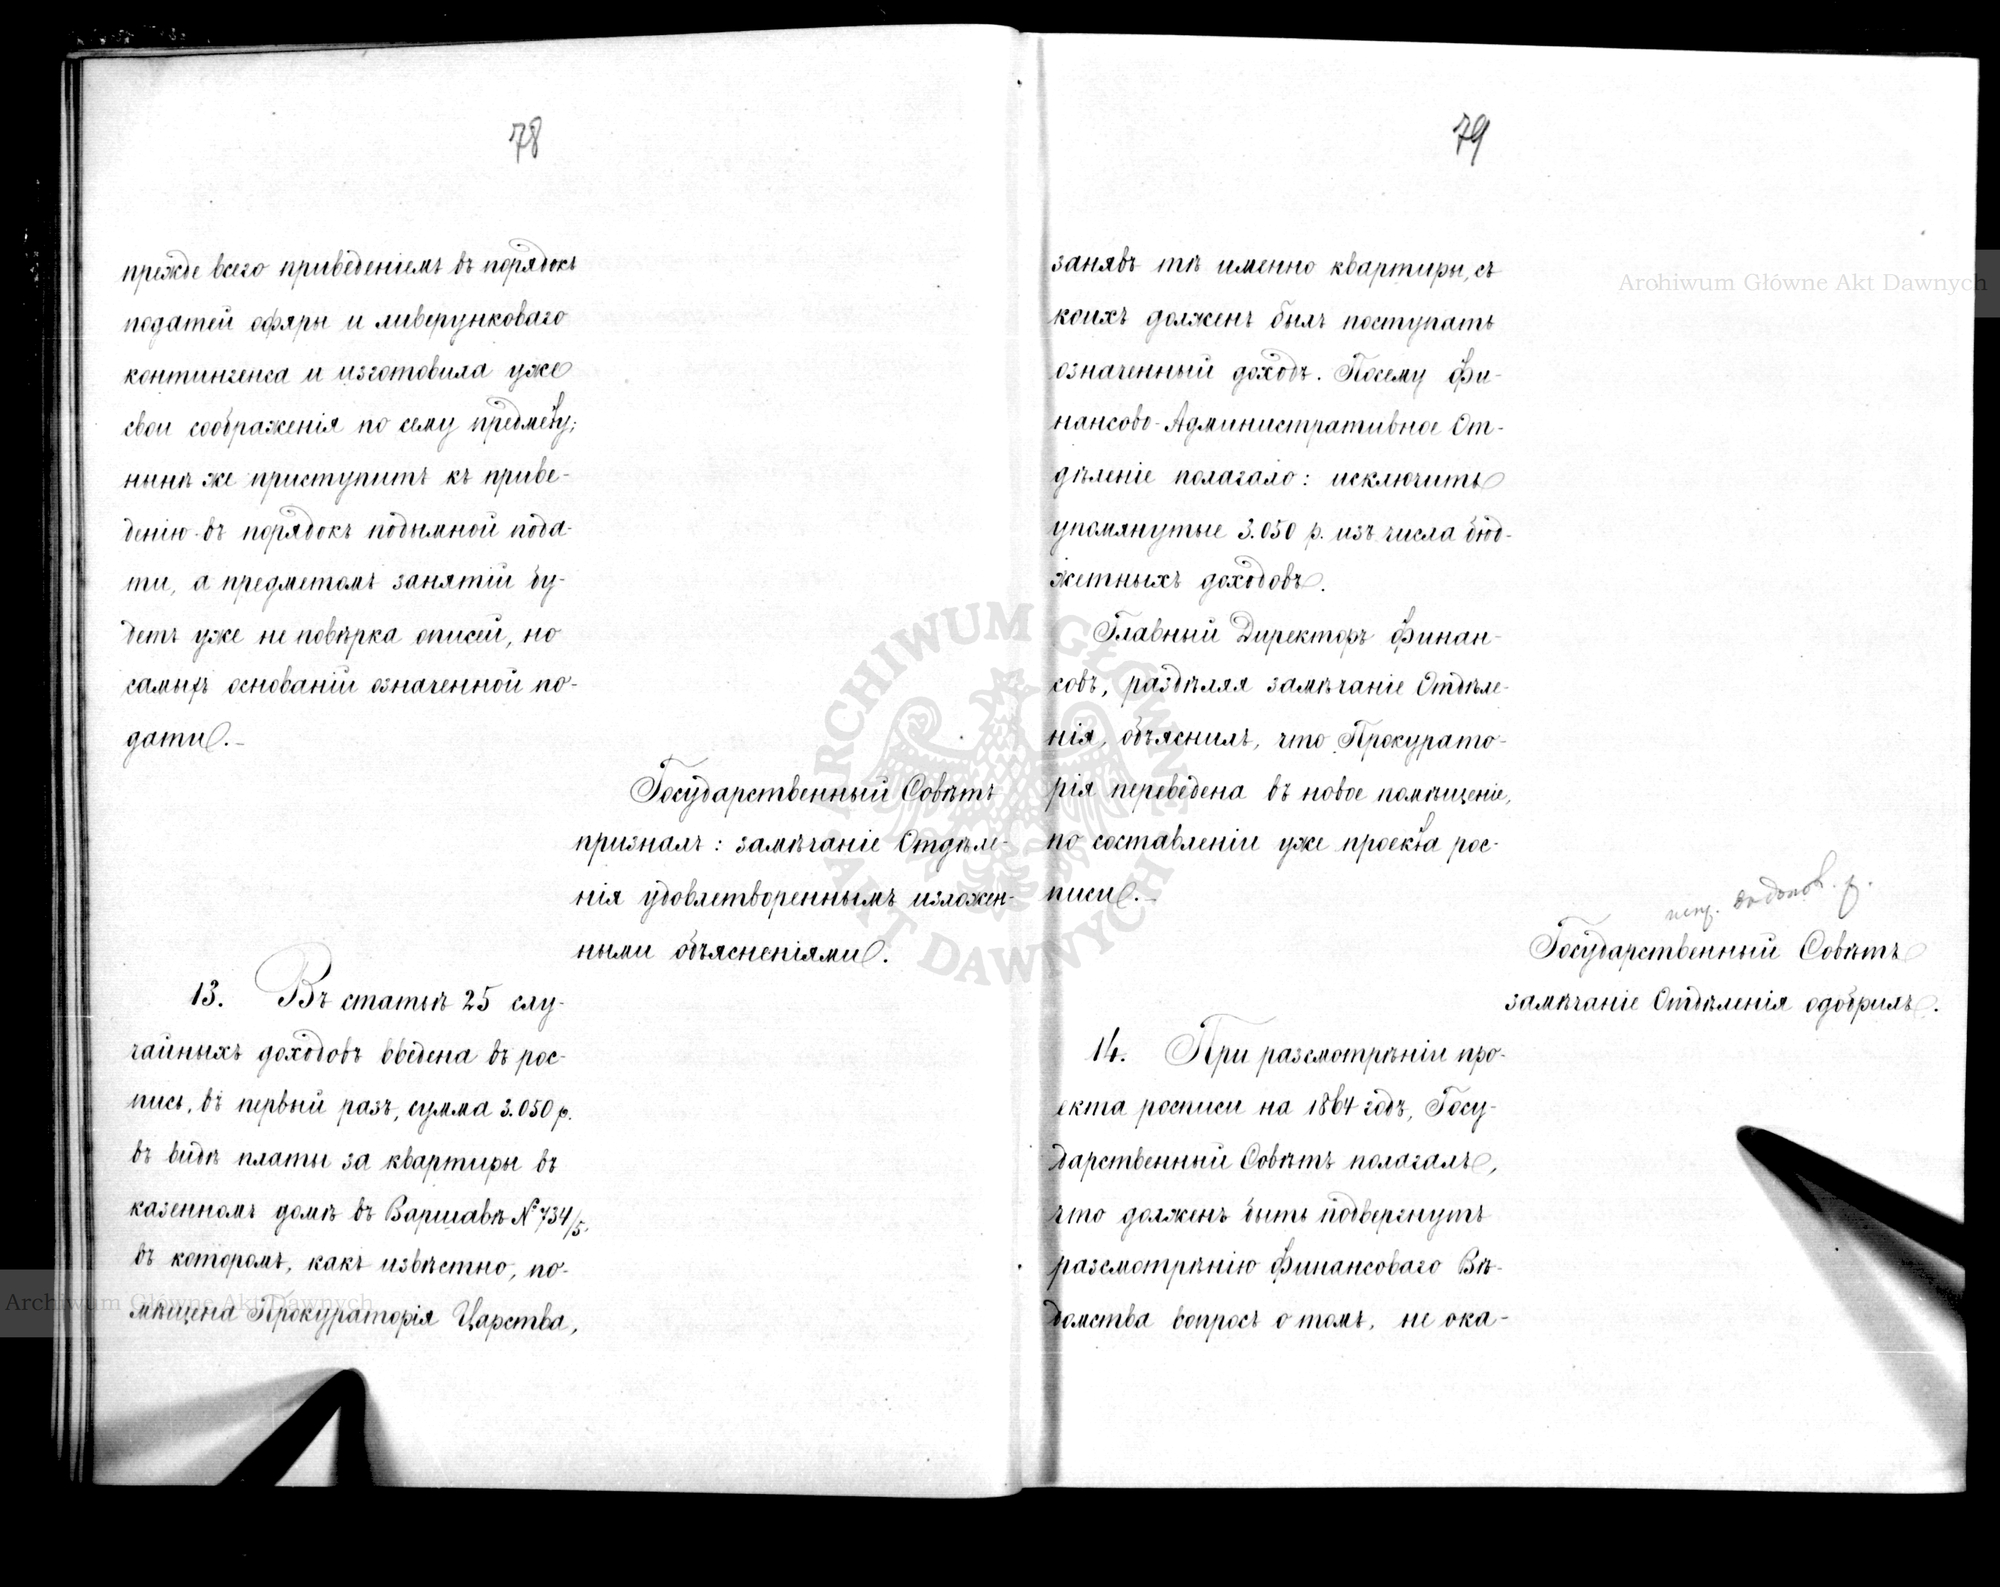 78
прежде всего приведеніемъ въ порядокъ
податей офяры и ливерунковаго
контингенса и изготовила уже
свои соображенія по сему предмету;
нынѣ же приступитъ къ приве-
денію въ порядокъ подымной пода-
ти, а предметомъ занятій бу-
детъ уже не повѣрка описей, но
самыхъ основаній означенной по-
дати.–
Государственный Совѣтъ
призналъ: замѣчаніе Отдѣле-
нія удовлетвореннымъ изложен-
ными объясненіями.
13. Въ статьѣ 25 слу-
чайныхъ доходовъ введена въ рос-
пись, въ первый разъ, сумма 3.050 р.
въ видѣ платы за квартиры въ
казенномъ домѣ въ Варшавѣ № 734/5,
въ которомъ, какъ извѣстно, по-
мѣщена Прокураторія Царства,
79
занявъ тѣ именно квартиры, съ
коихъ долженъ былъ поступать
означенный доходъ. Посему Фи-
нансово-Административное От-
дѣленіе полагало: исключить
упомянутые 3.050 р. изъ числа бюд-
жетныхъ доходовъ.
Главный Директоръ Финан-
совъ, раздѣляя замѣчаніе Отдѣле-
нія, объяснилъ, что Прокурато-
рія переведена въ новое помѣщеніе,
по составленіи уже проекта рос-
писи.–
Государственный Совѣтъ
замѣчаніе Отдѣленія одобрилъ.
14. При разсмотрѣніи про-
екта росписи на 1864 годъ, Госу-
дарственный Совѣтъ полагалъ,
что долженъ быть подвергнутъ
разсмотрѣнію Финансоваго Вѣ-
домства вопросъ о томъ, не ока-
Archiwum Główne Akt Dawnych
Archiwum Główne Akt Dawnych
ARCHIWUM GŁÓWNE AKT DAWNYCH